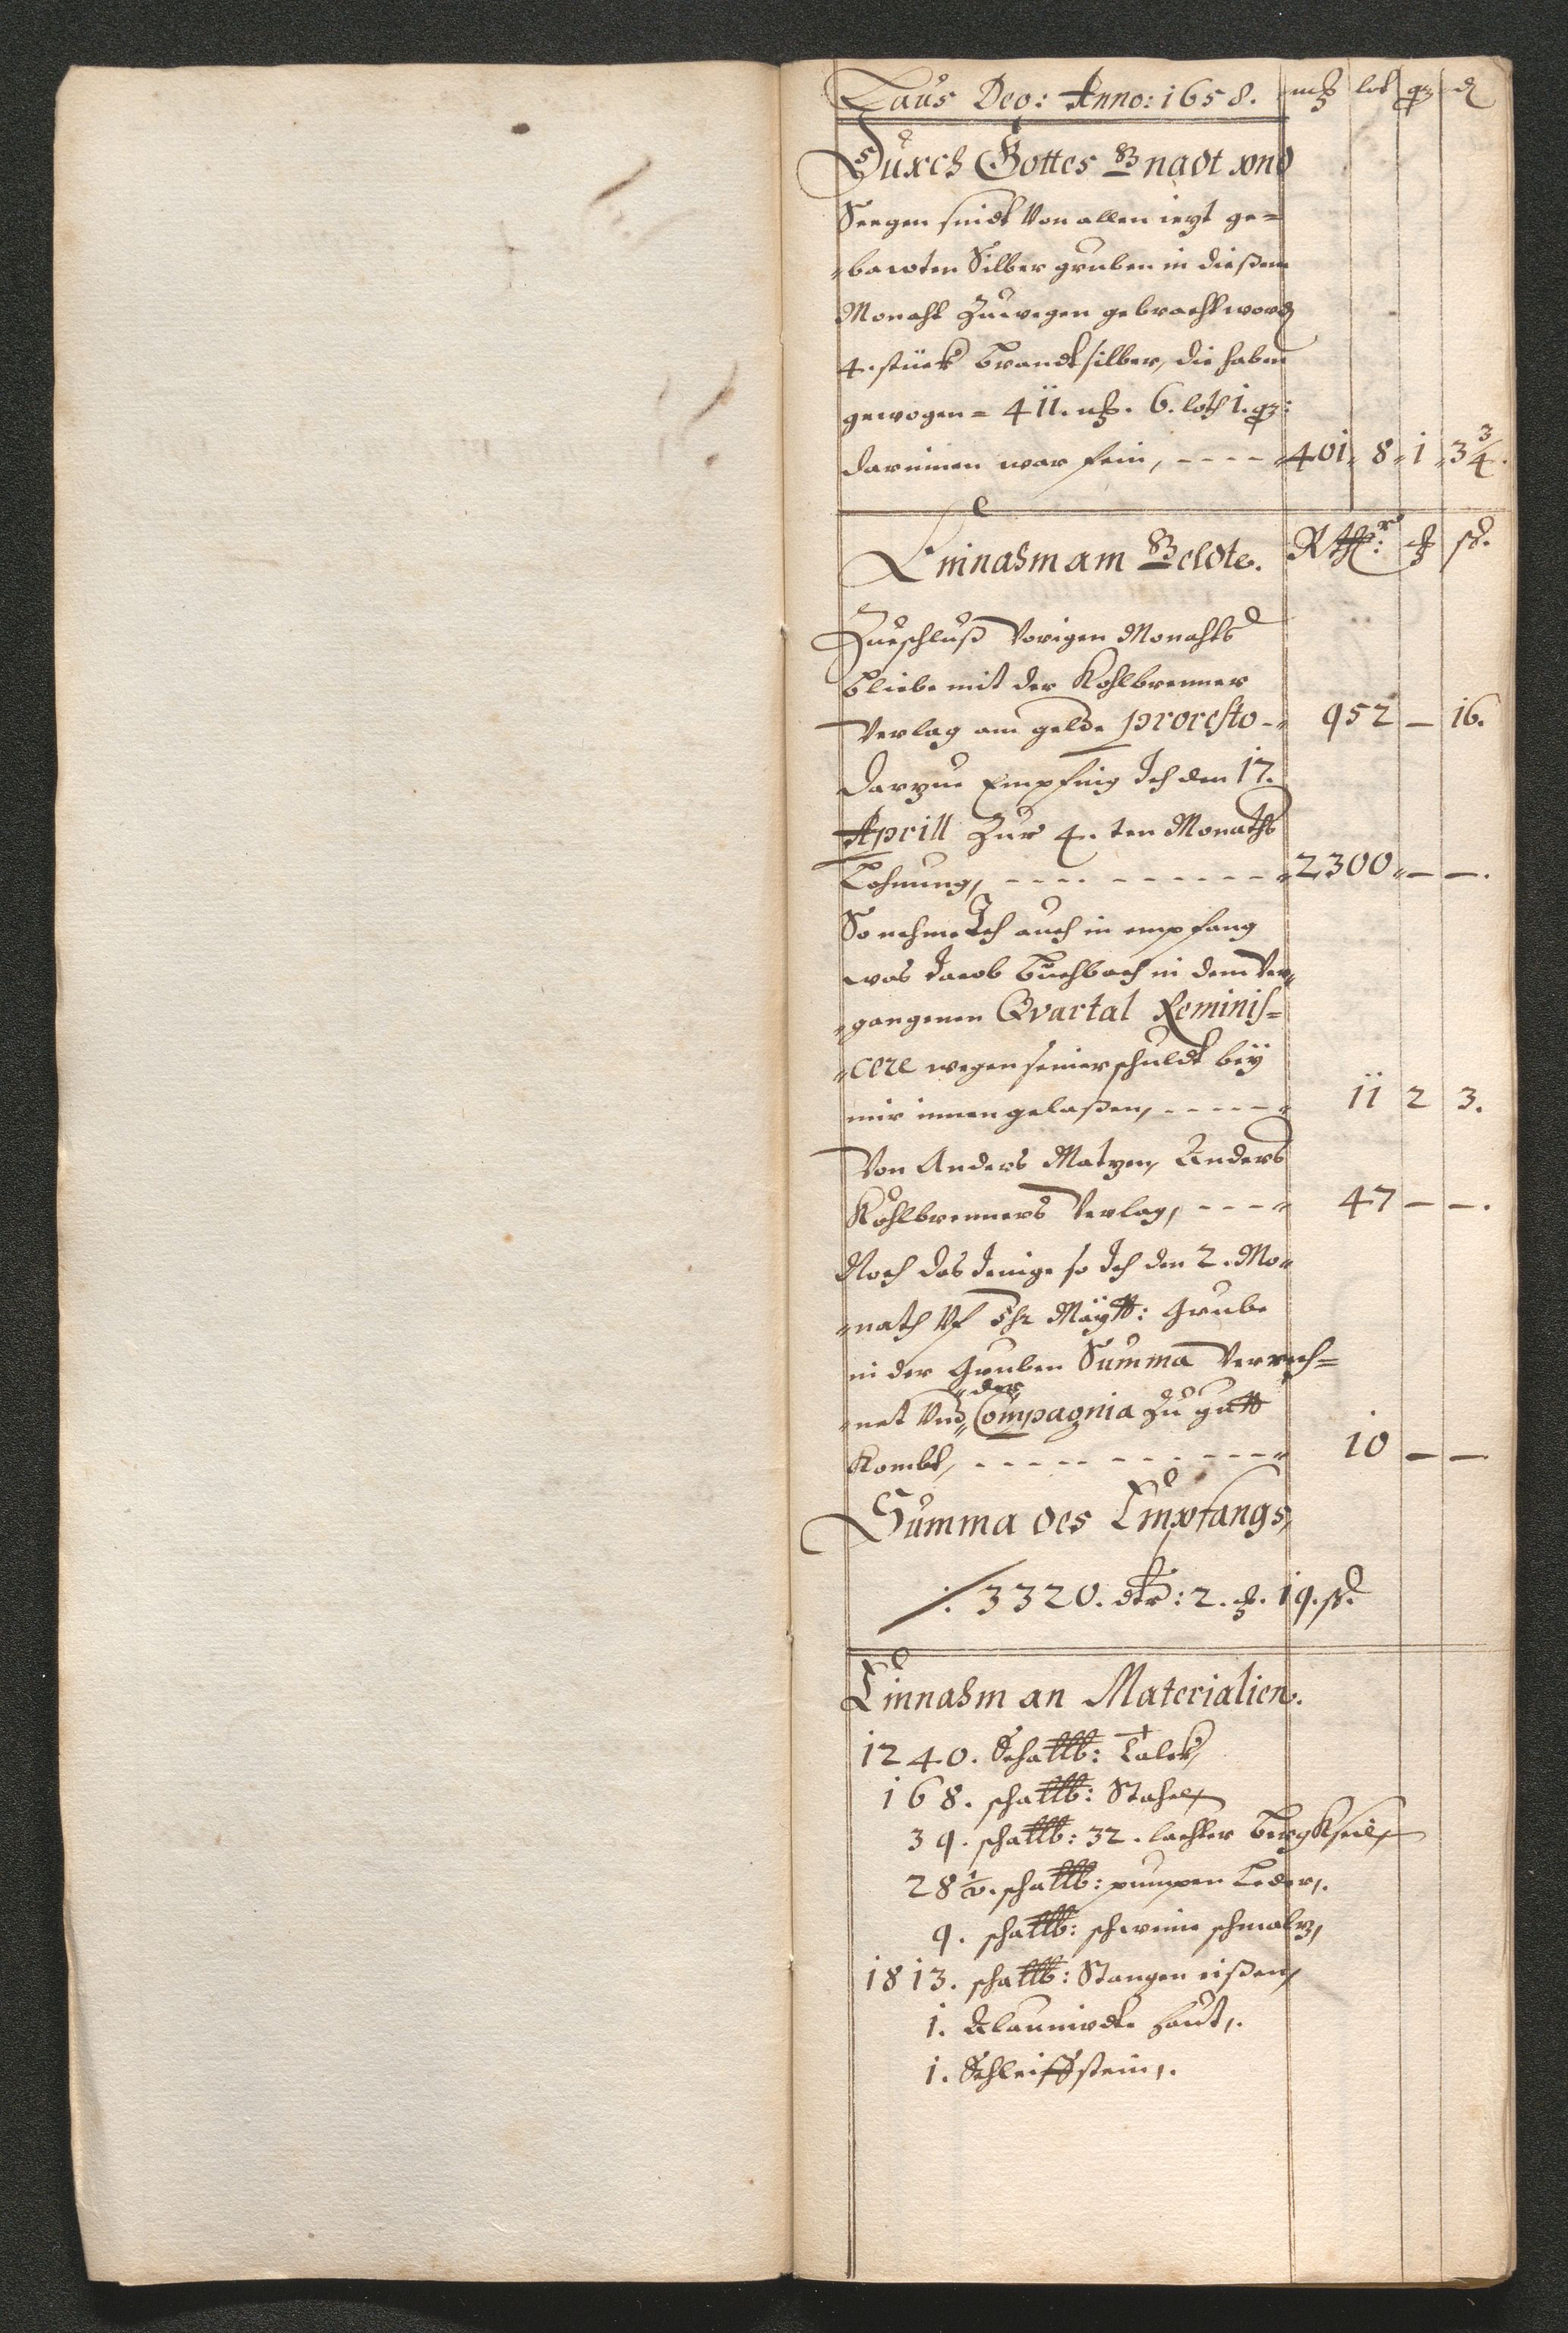 Laus Deo: Anno: 1658. mk lot q d
Durch Gottes Gnadt vnd
Seegen seindt Von allen iezt ge=
=bawten Silber gruben in dießem
Monaht Zuwegen gebracht word
4. stück brandtsilber, die haben
gewogen = 411. mk. 6. loth 1. q:
darinnen war fein, - - - - 401 8 1 3 3/4.
Einnahm am Geldte. Rthlr: ß.
Zueschluß Vorigen Monahts
bliebe mit der Kohlbrenner
Verlag am gelde pro resto - 952 — 16.
darzue Empfing Ich den 17.
Aprill Zur 4. ten Monaths
Lohnung, - - - - - - - - - - 2300 — —.
So nehme Ich auch in empfang
was Jacob Buchbach in dem Ver=
=gangenen Qvartal Reminis=
=cere wegen seiner schuldt beÿ
mir innen gelaßen, - - - - - 11 2 3.
Von Anders Matzen, Anders
Kohlbrenners Verlag, - - - - 47 — —.
Noch das Jenige so Ich den 2. Mo=
=nath Vf Ihr Maÿtt: Grube
in der Gruben Summa Verrech=
der
=net Vnd Compagnia Zu gutt
Kombt, - - - - - - - - - - 10 — —
Summa des Empfangs,
/. 3320. dlr: 2. 19. ß.
Einnahm an Materialien.
1240. Schallb: Talck,
168. schallb: Stahel,
39. schallb: 32. lachter bergkseil,
28 1/2. schallb: pumpen Leder,.
9. schallb: schweine schmaltz,
1813. schallb: Stangen eißen,
1. Alaunirdte haut,.
1. Schleiffstein,.